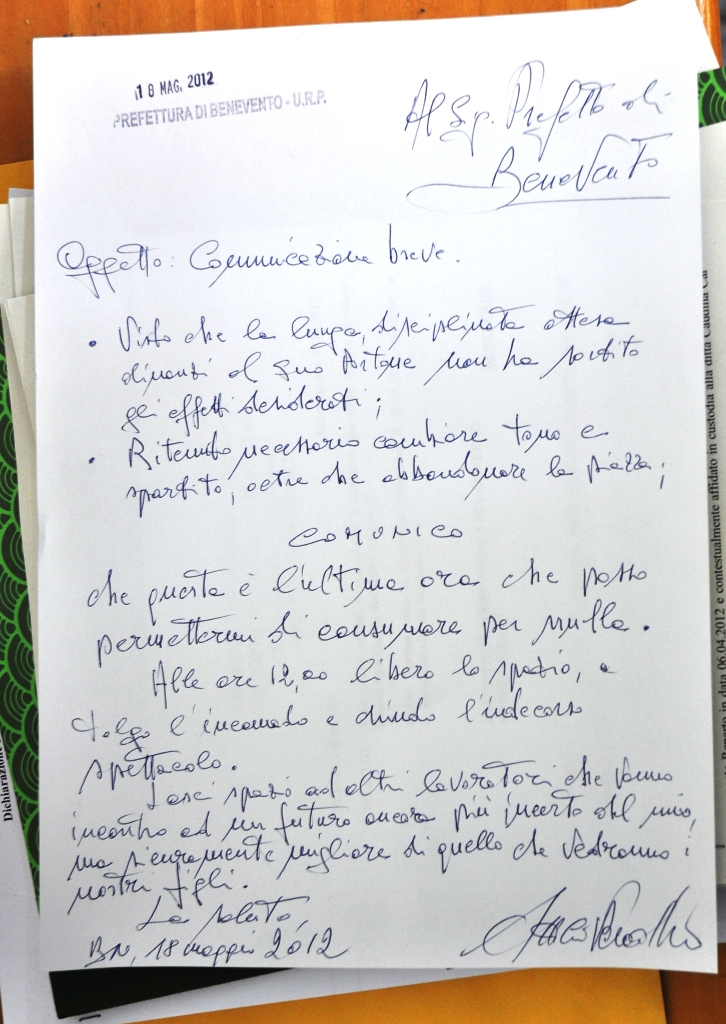 18 MAG. 2012
PREFETTURA DI BENEVENTO - U.R.P.
Al Sg. Prefetto di
Benevento
Oggetto: Comunicazione breve.
• Visto che la lunga, disciplinata attesa
dinanzi al Suo non ha sortito
gli effetti desiderati;
• Ritenuto necessario cambiare tono e
spartito, oltre che abbandonare la piazza;
COMUNICO
che questa è l'ultima ora che posso
permettermi di consumare per nulla.
Alle ore 12,00 libero lo spazio,
tolgo l'incomodo e chiudo l'indecoroso
spettacolo.
Lasci spazio ad altri lavoratori che vanno
incontro ad un futuro ancora più incerto del mio,
ma sicuramente migliore di quello che vedranno i
nostri figli.
La saluto,
BN, 18 maggio 2012
Dichiarazione
in data 06.04.2012 e contestualmente affidato in custodia alla ditta Caudina